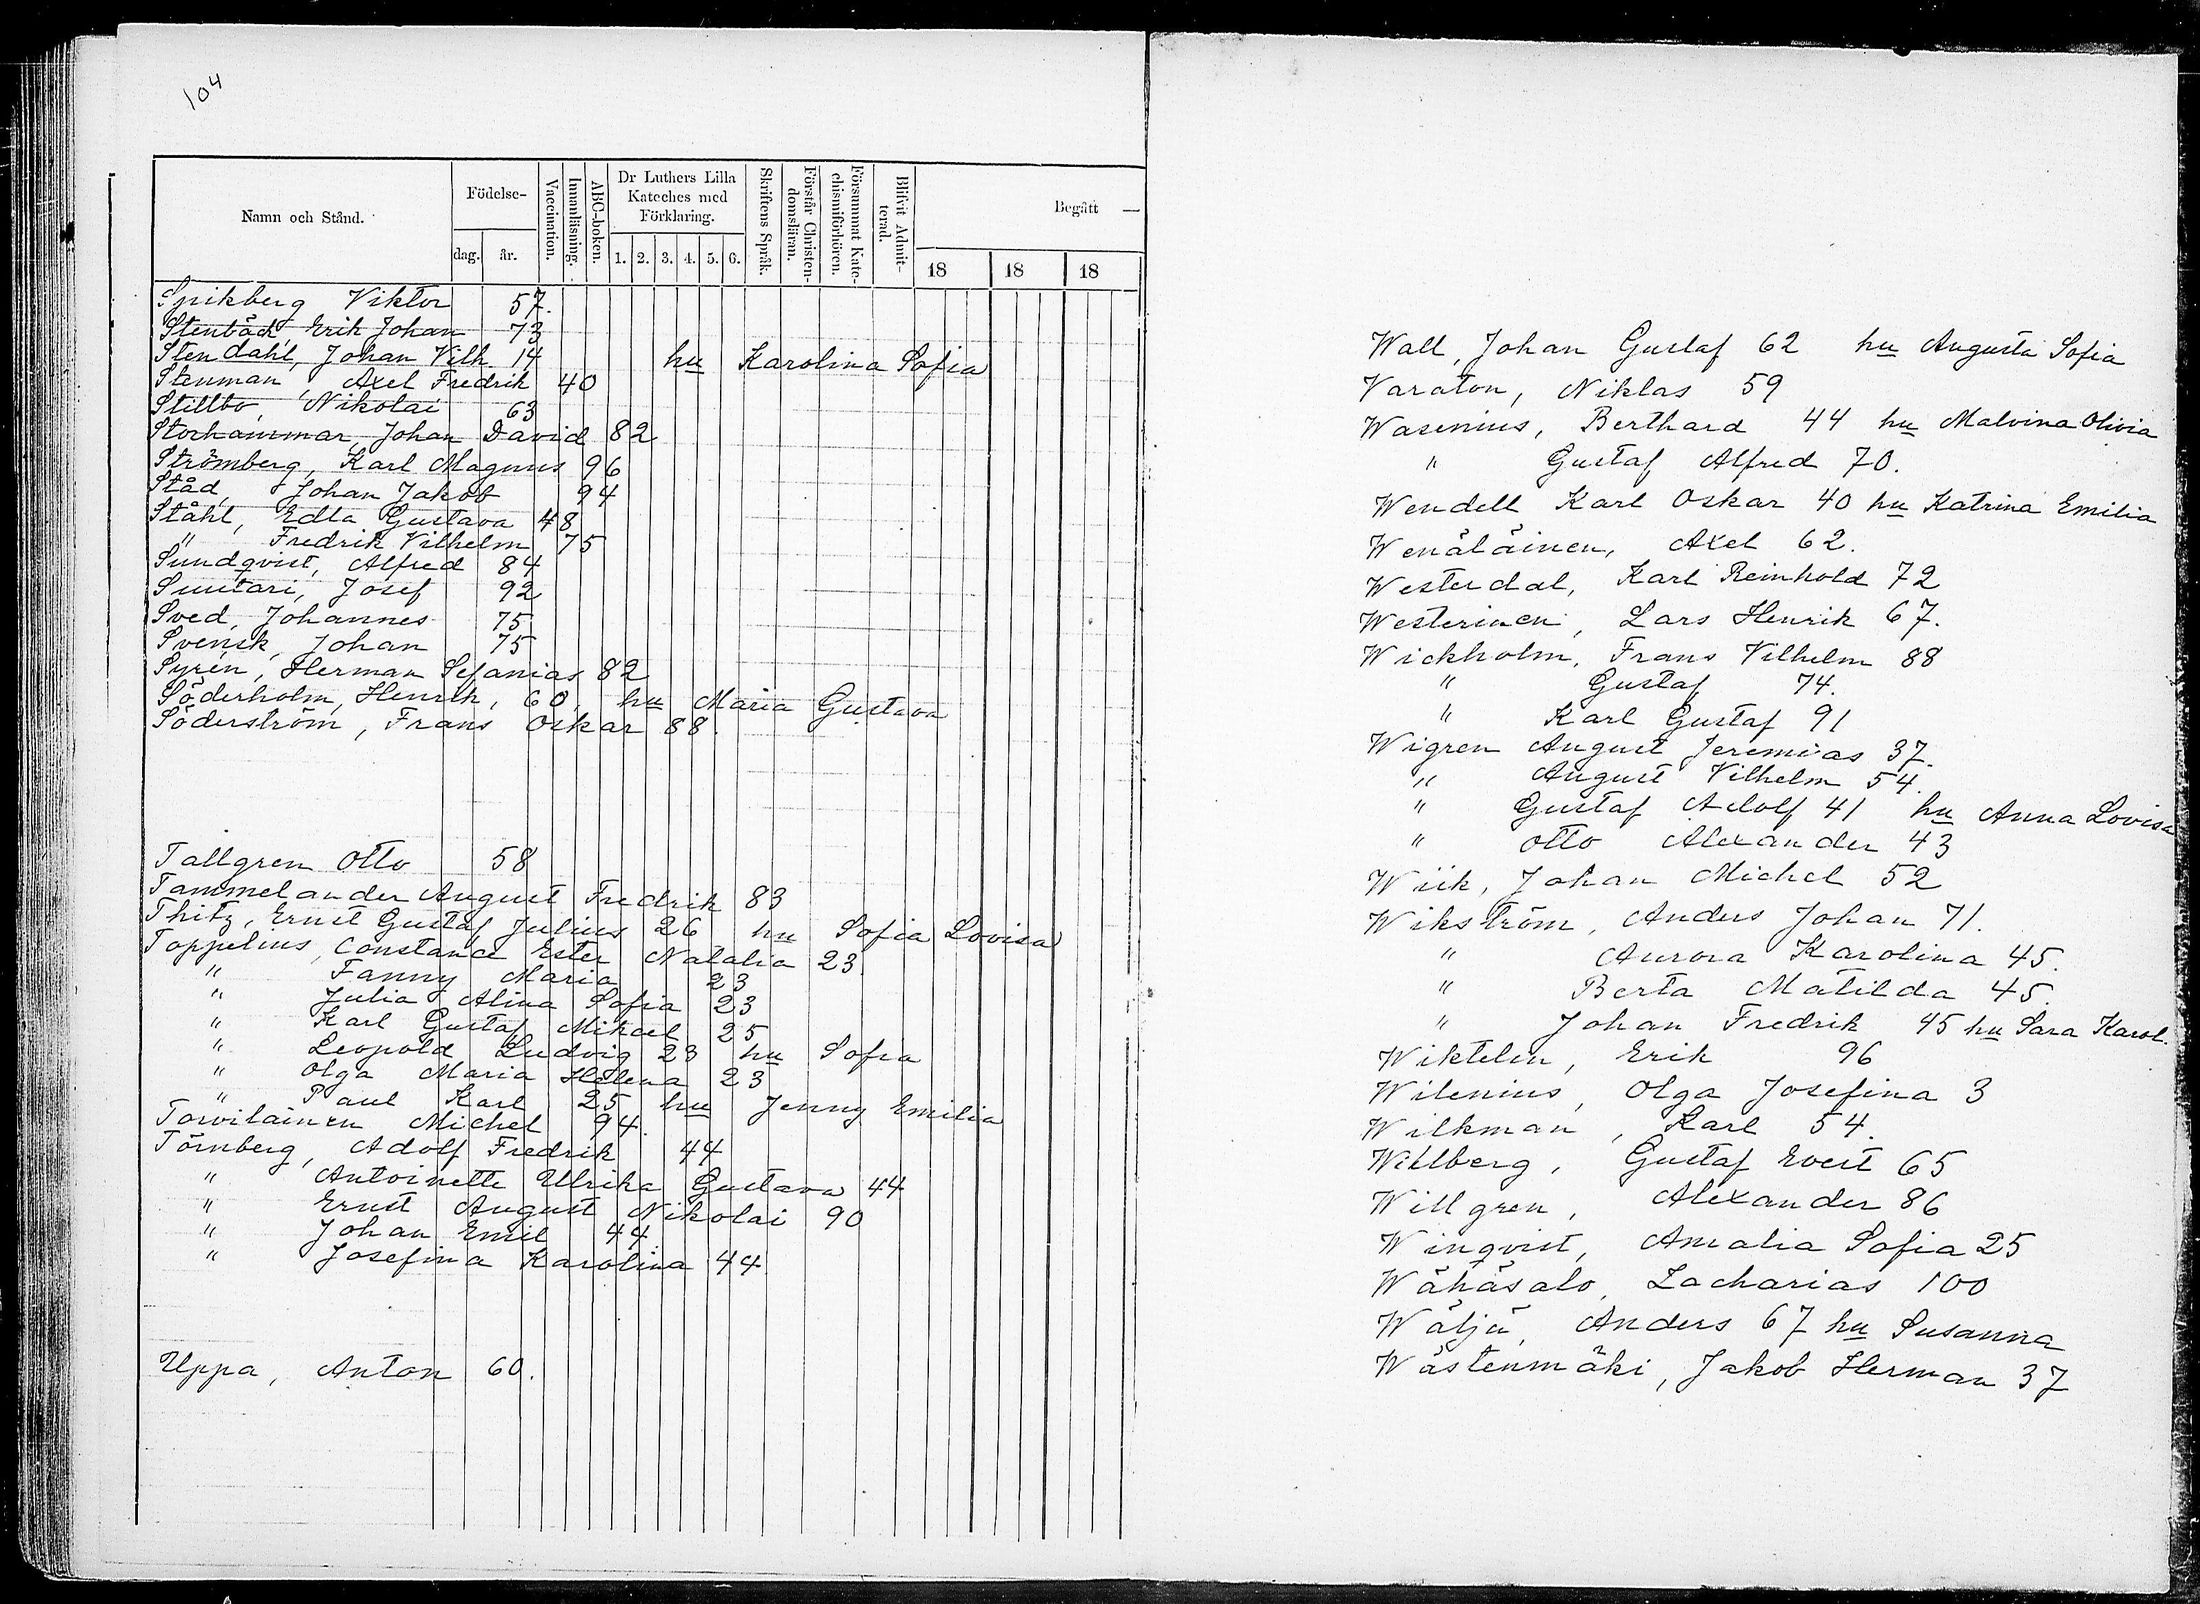 104
Namn och Stånd.
Födelse-
dag.
år.
Vaccination.
Innanläsning.
ABC-boken.
Dr Luthers Lilla
Kateches med
Förklaring.
1. 2. 3. 4. 5. 6.
Skriftens Språk.
Förstår Christen-
domsläran.
Försummat Kate-
chismiförhören.
Blifvit Admit-
terad.
Begått —
18 18 18
Spikberg Viktor 57.
Stenbäck, Erik Johan 73
Stendahl, Johan Vilh 14 hu Karolina Sofia
Stenman, Axel Fredrik 40
Stillbo, Nikolai 63
Storhammar, Johan David 82
Strömberg, Karl Magnus 96
Ståd, Johan Jakob 94
Ståhl, Edla Gustava 48
" Fredrik Vilhelm 75
Sundqvist, Alfred 84
Suutari, Josef 92
Sved, Johannes 75
Svensk, Johan 75
Syrén, Herman Sefanias 82
Söderholm, Henrik, 60, hu Maria Gustava
Söderström, Frans Oskar 88.
Tallgren Otto 58
Tammelander August Fredrik 83
Thitz, Ernst Gustaf Julius 26 hu Sofia Lovisa
Toppelius, Constance Ester Natalia 23
" Fanny Maria 23
" Julia Alina Sofia 23
" Karl Gustaf Mikael 25
" Leopold Ludvig 23 hu Sofia
" Olga Maria Helena 23
" Paul Karl 25 hu Jenny Emilia
Torvilainen Michel 94.
Törnberg, Adolf Fredrik 44
" Antoinette Ulrika Gustava 44
" Ernst August Nikolai 90
" Johan Emil 44
" Josefina Karolina 44
Uppa, Anton 60.
Wall, Johan Gustaf 62 hu Augusta Sofia
Varaton, Niklas 59
Wasenius, Berthard 44 hu Malvina Olivia
" Gustaf Alfred 70.
Wendell Karl Oskar 40 hu Katrina Emilia
Wenäläinen, Axel 62.
Westerdal, Karl Reinhold 72
Westerinen, Lars Henrik 67.
Wickholm, Frans Vilhelm 88
" Gustaf 74.
" Karl Gustaf 91
Wigren August Jeremias 37.
" August Vilhelm 54.
" Gustaf Adolf 41 hu Anna Lovisa
" Otto Alexander 43
Wiik, Johan Michel 52
Wikström, Anders Johan 71.
" Aurora Karolina 45.
" Berta Matilda 45.
" Johan Fredrik 45 hu Sara Karol.
Wiktelin, Erik 96
Wilenius, Olga Josefina 3
Wilkman, Karl 54.
Willberg, Gustaf Evert 65
Willgren, Alexander 86
Winqvist, Amalia Sofia 25
Wähäsalo, Zacharias 100
Wäljä, Anders 67 hu Susanna
Wästenmäki, Jakob Herman 37